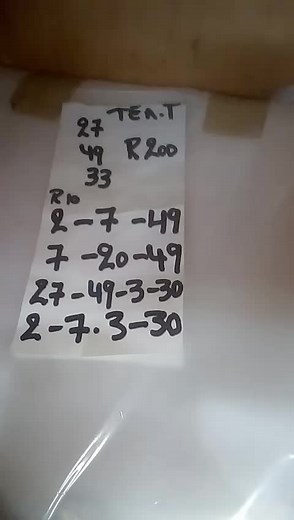 TEA.T
27
49 R200
33
R10
2-7-49
7-20-49
27-49-3-30
2-7.3-30